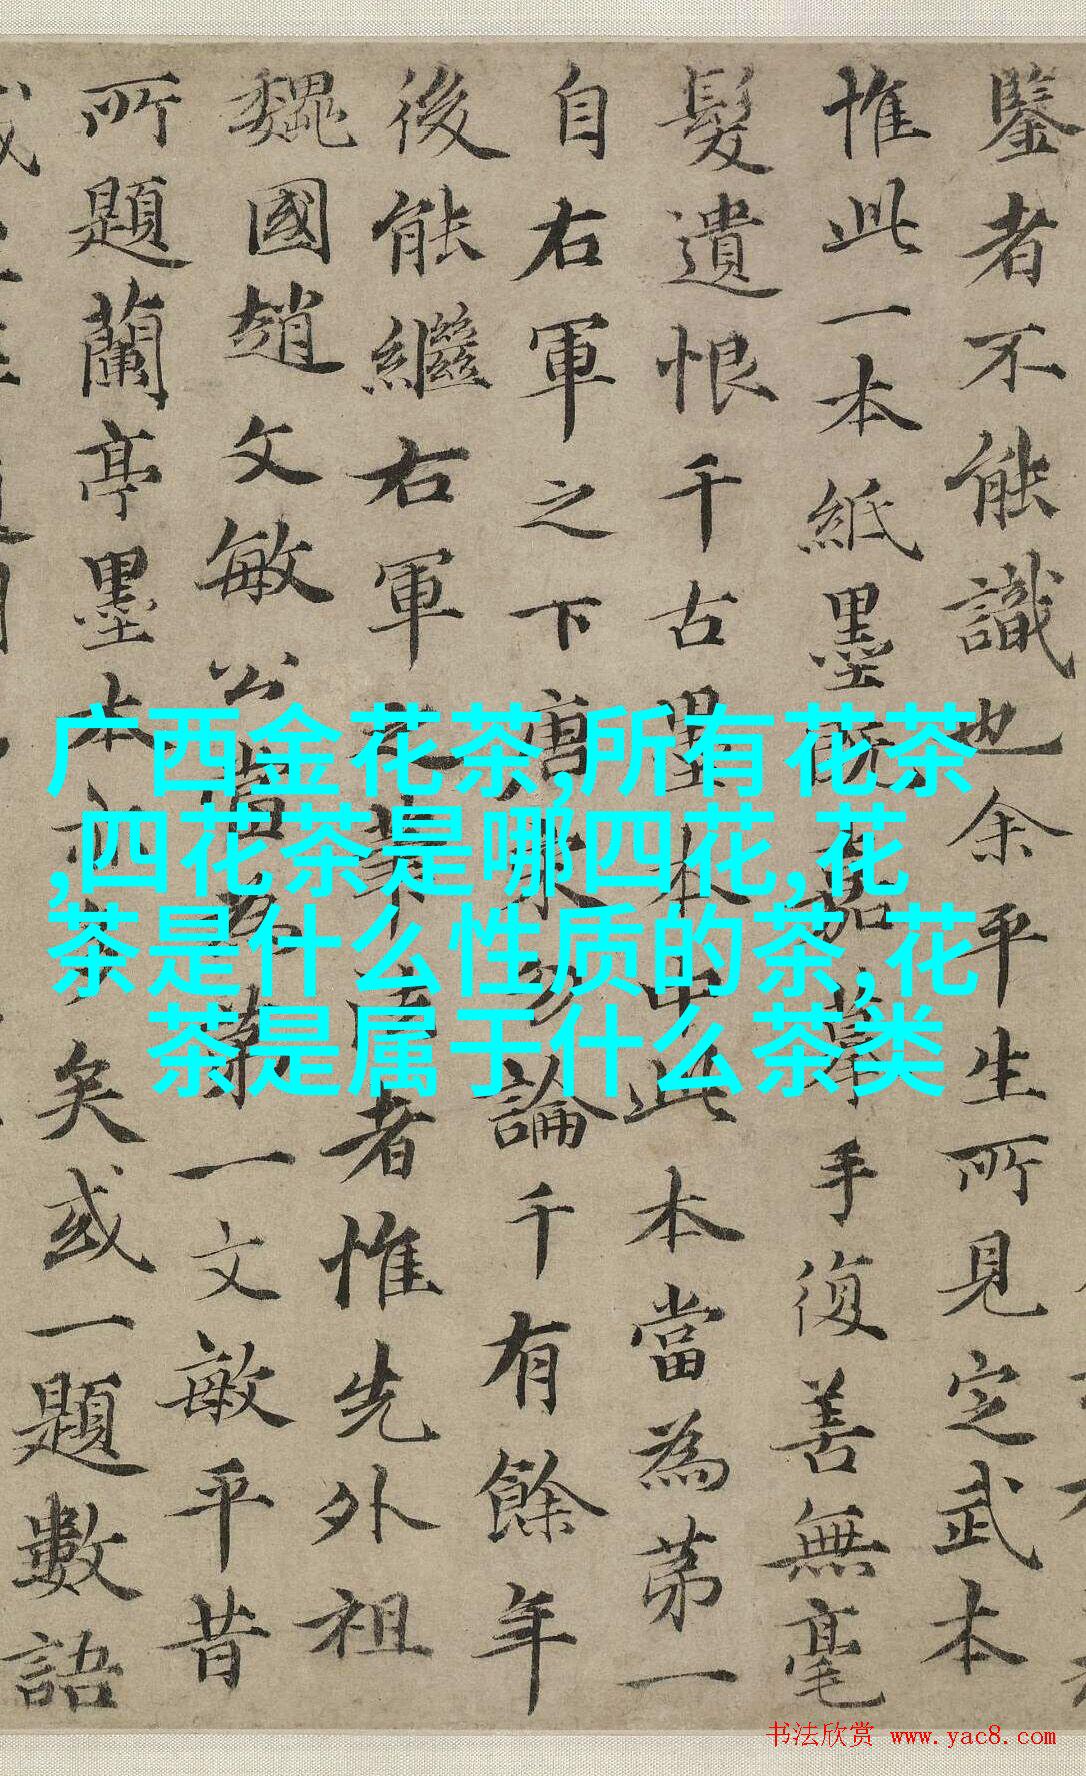 鑒者不能識也余平生所見定武本
惟此一本紙墨既嘉摹手復善無毫
髮遺恨千古墨本中此本當為第一
自右軍之下唐勿論千有餘年
後能繼右軍筆法者惟先外祖
魏國趙文敏公當為第一文敏平昔
所題蘭亭墨本亦多矣或一題數語
广西金花茶,所有花茶
,四花茶是哪四花,花
茶是什么性质的茶,花
茶是属于什么茶类
书法欣赏 www.yac8.com